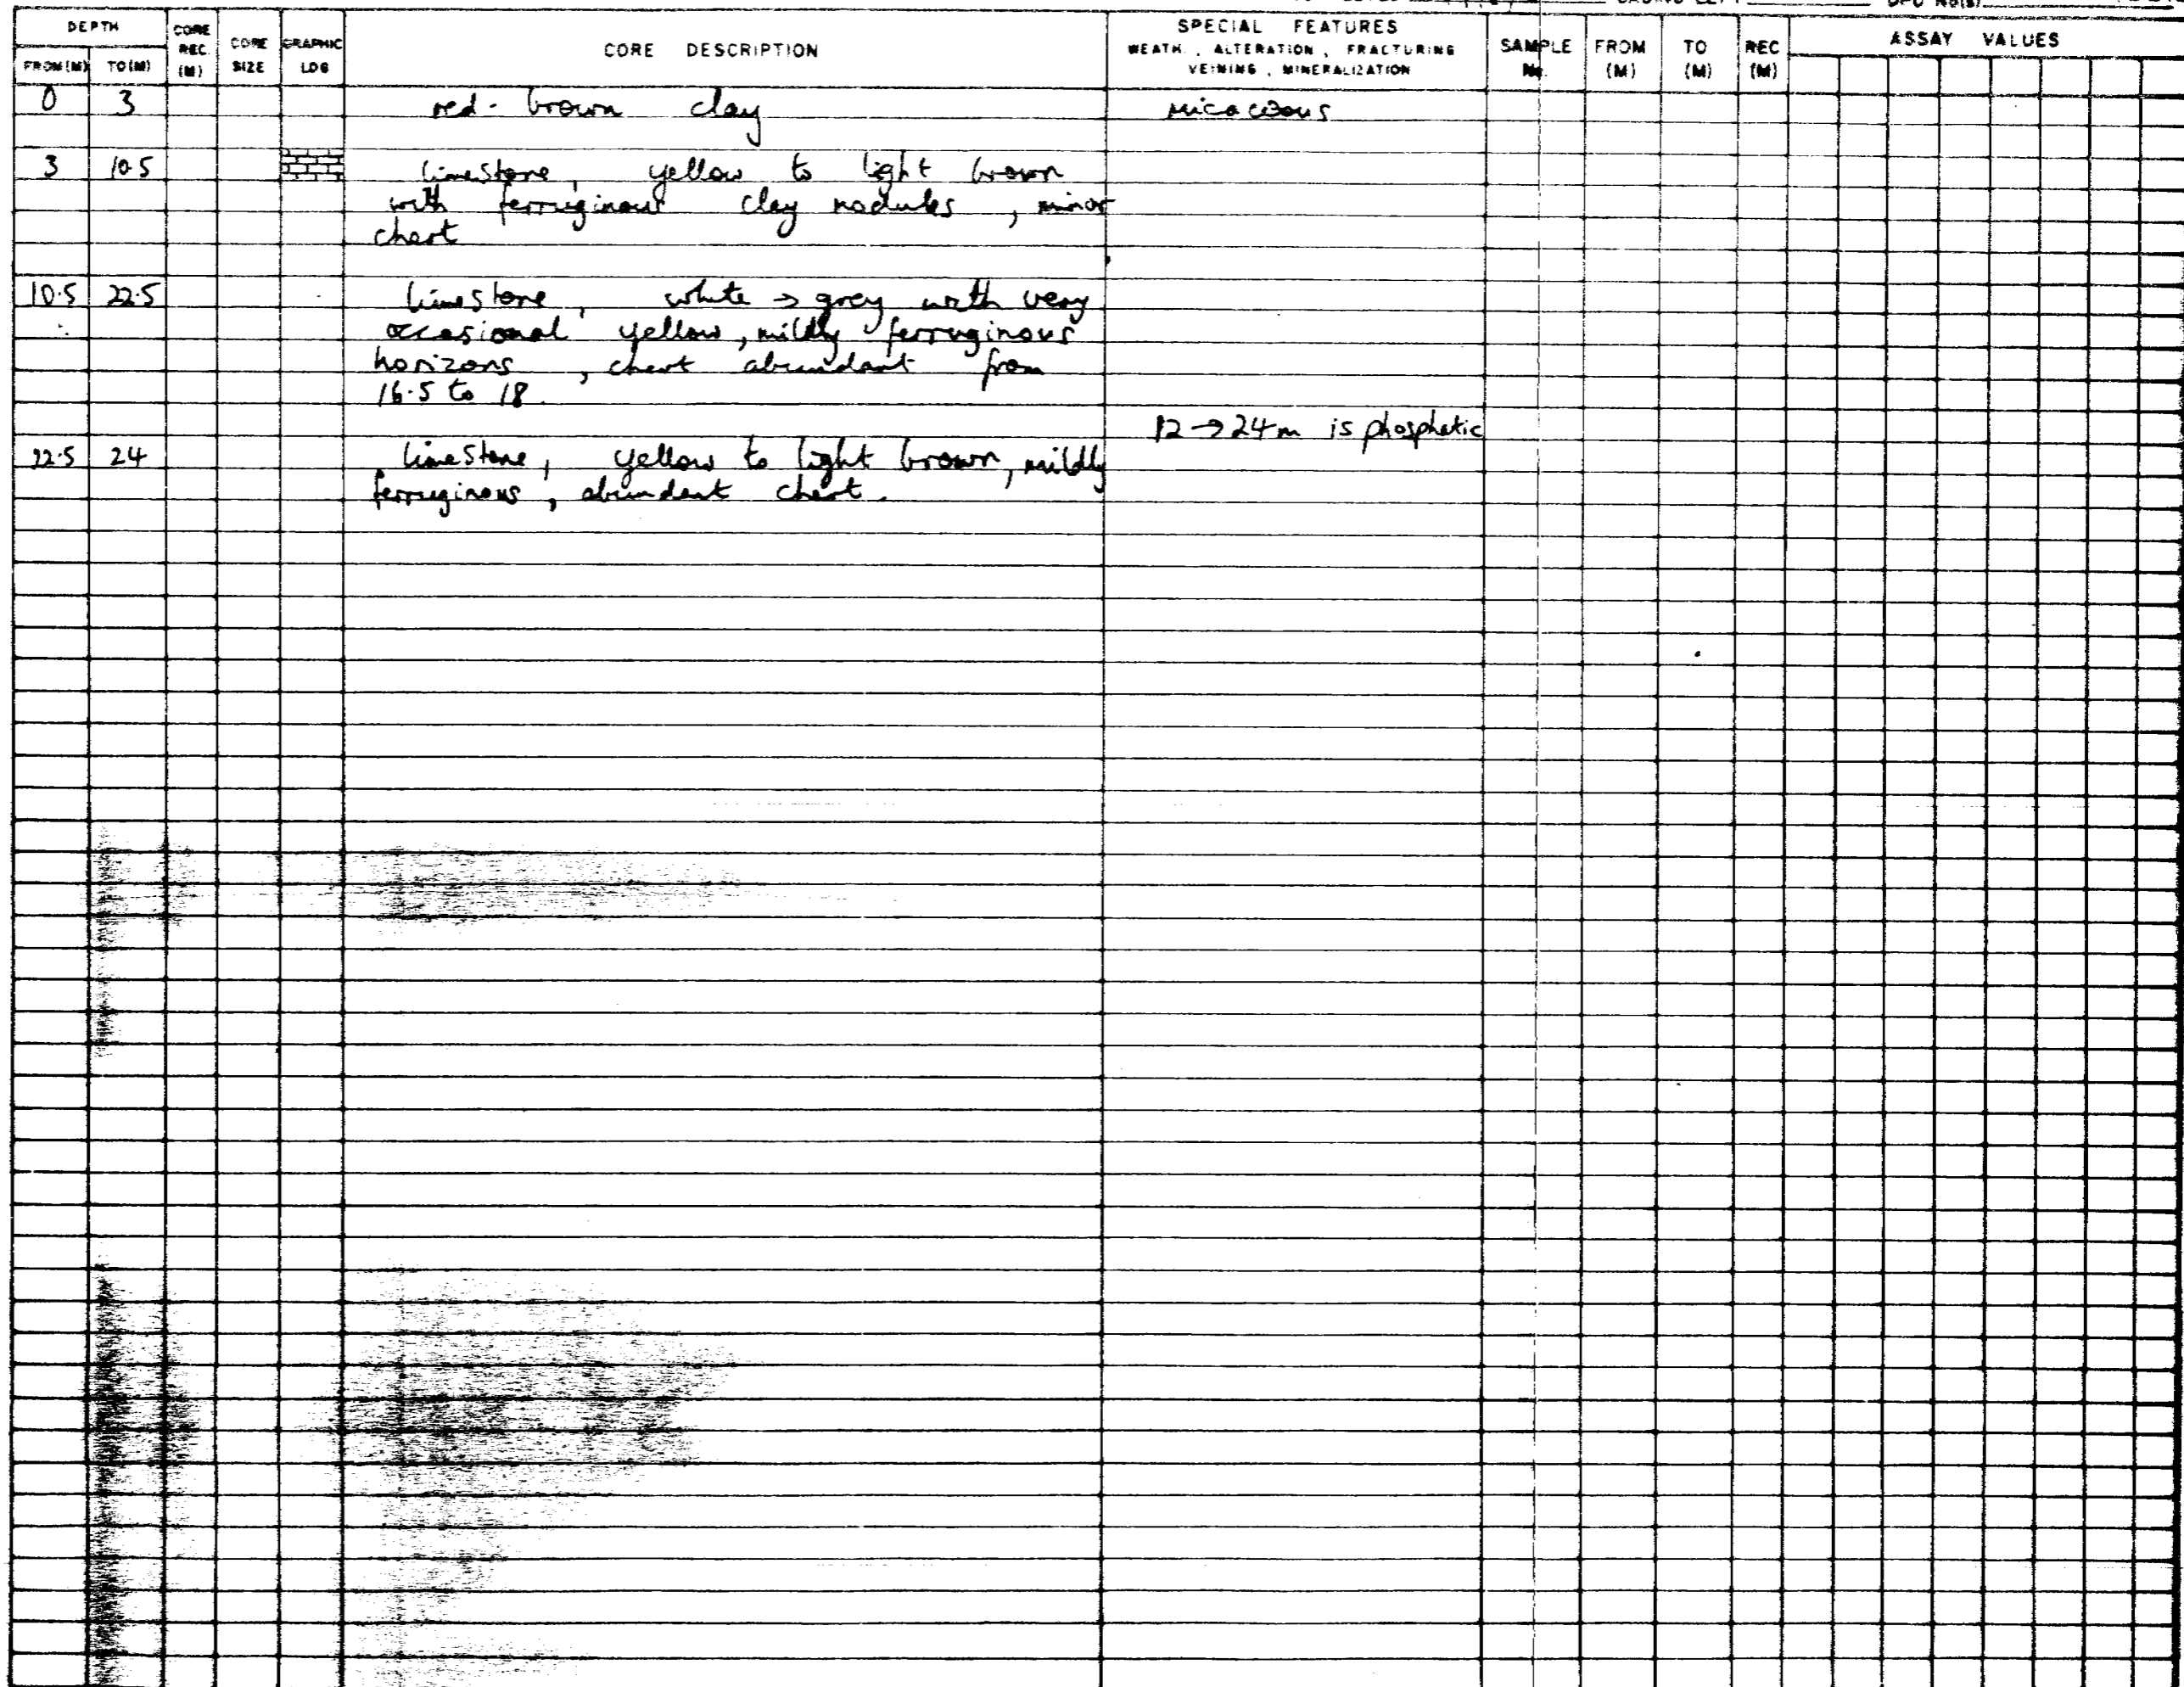 DEPTH CORE REC. (M) CORE SIZE GRAPHIC LOG CORE DESCRIPTION SPECIAL FEATURES WEATH., ALTERATION, FRACTURING VEINING, MINERALIZATION SAMPLE No. FROM (M) TO (M) REC (M) ASSAY VALUES
FROM (M) TO (M)
0 3 red-brown clay micaceous
3 10.5 limestone, yellow to light brown
with ferruginous clay nodules, minor
chert
10.5 22.5 limestone, white → grey with very
occasional yellow, mildly ferruginous
horizons, chert abundant from
16.5 to 18.
12 → 24m is phosphatic
22.5 24 limestone, yellow to light brown, mildly
ferruginous, abundant chert.